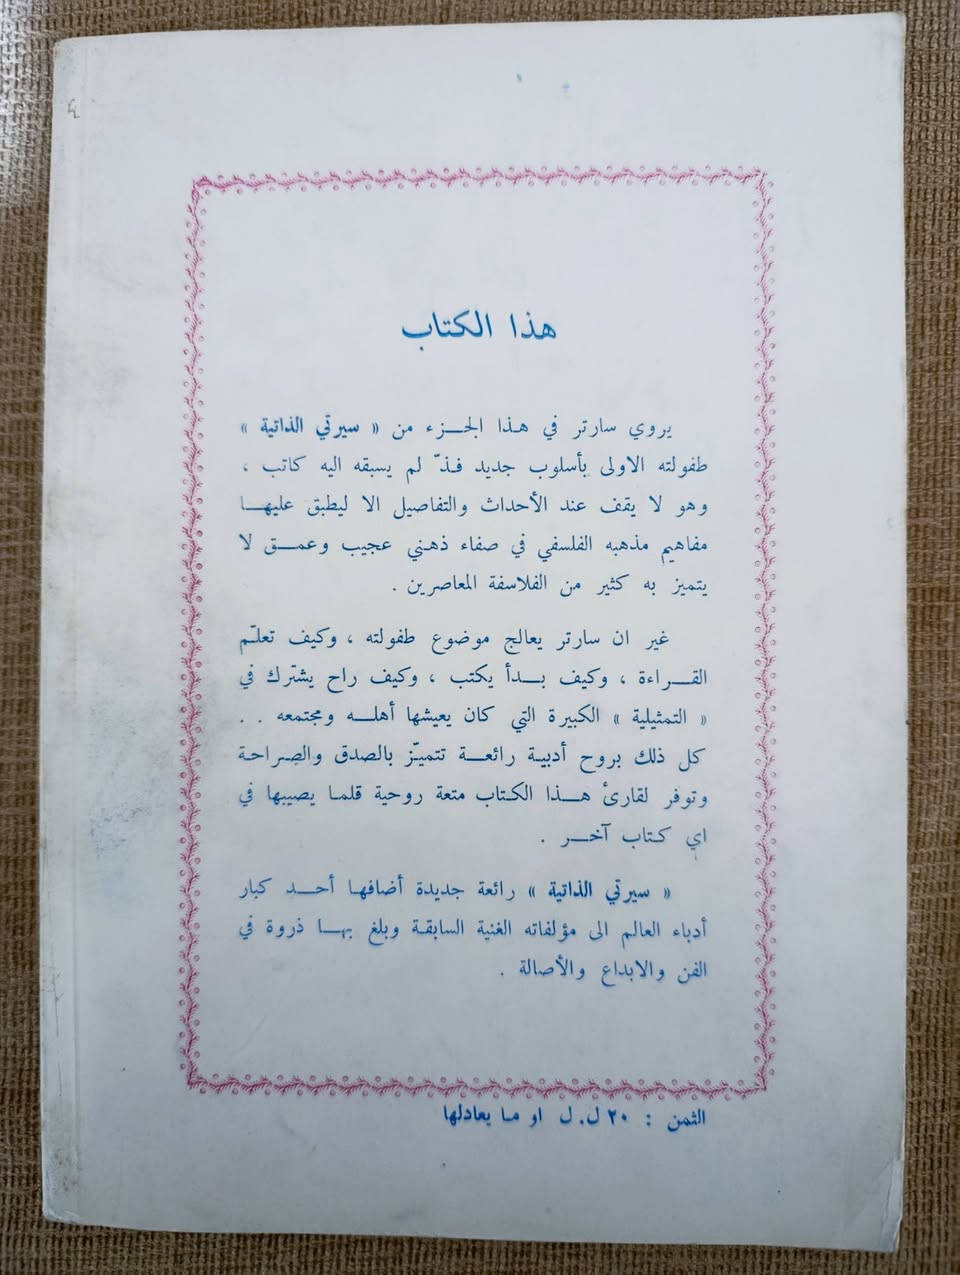 هذا الكتاب
يروي سارتر في هذا الجزء من « سيرتي الذاتية »
طفولته الاولى بأسلوب جديد فذّ لم يسبقه اليه كاتب ،
وهو لا يقف عند الأحداث والتفاصيل الا ليطبق عليها
مفاهيم مذهبه الفلسفي في صفاء ذهني عجيب وعمق لا
يتميز به كثير من الفلاسفة المعاصرين .
غير ان سارتر يعالج موضوع طفولته ، وكيف تعلّم
القراءة ، وكيف بدأ يكتب ، وكيف راح يشترك في
« التمثيلية » الكبيرة التي كان يعيشها أهله ومجتمعه . .
كل ذلك بروح أدبية رائعة تتميّز بالصدق والصراحة
وتوفر لقارئ هذا الكتاب متعة روحية قلما يصيبها في
اي كتاب آخر .
« سيرتي الذاتية » رائعة جديدة أضافها أحد كبار
أدباء العالم الى مؤلفاته الغنية السابقة وبلغ بها ذروة في
الفن والابداع والأصالة .
الثمن : ٢٠ ل.ل او ما يعادلها